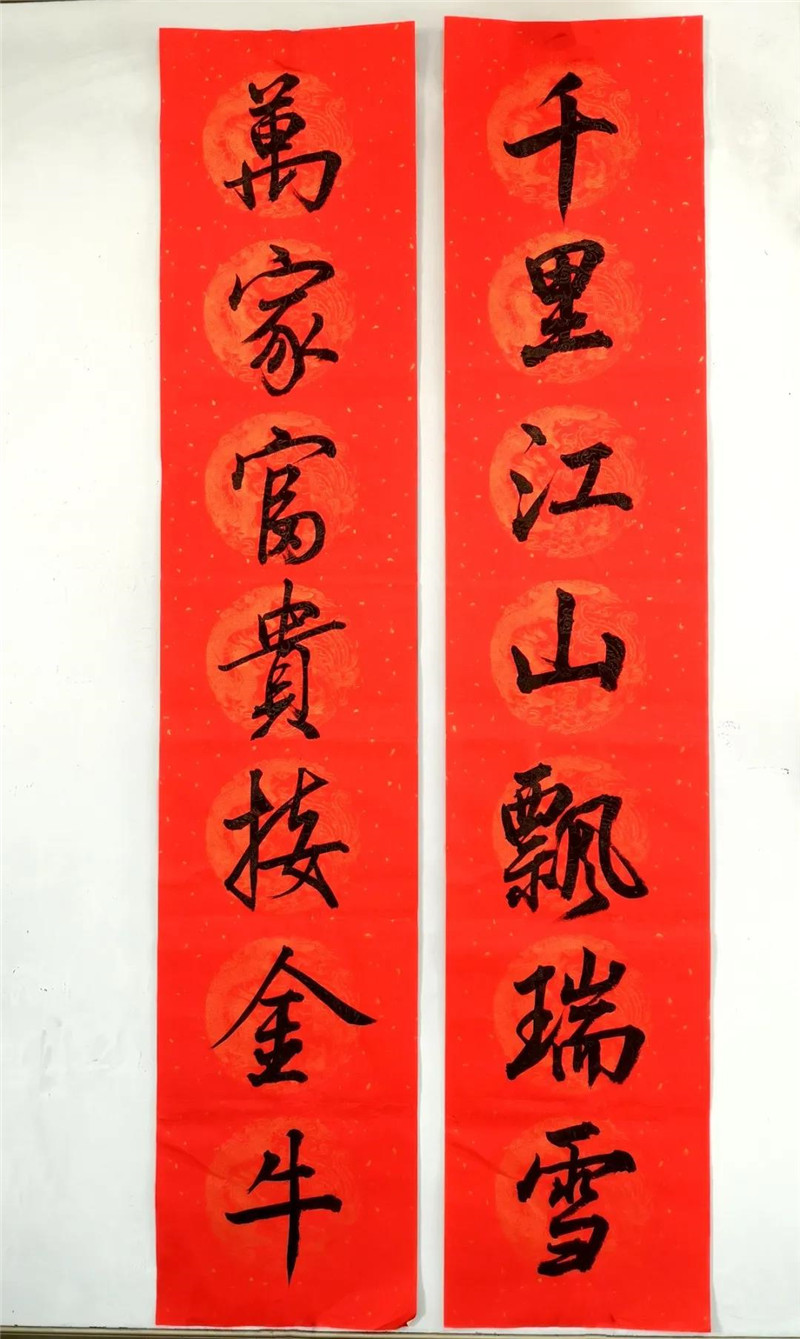 千里江山飄瑞雪
萬家富貴接金牛